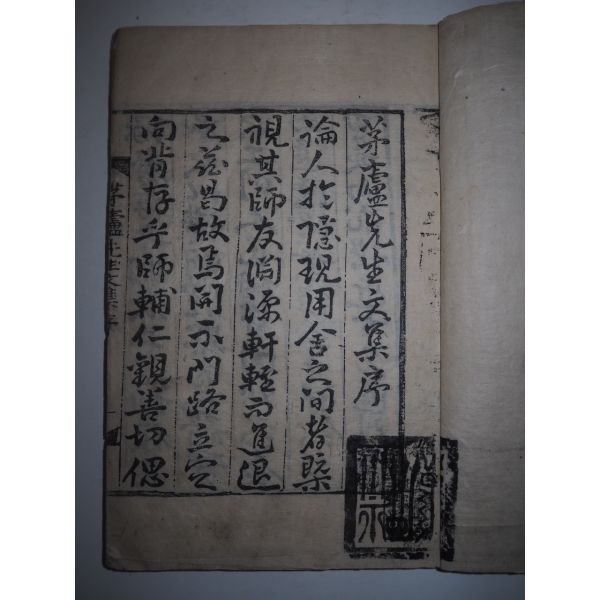 茅廬先生文集序
論人於隱現用舍之間者槩
視其師友淵源軒輊而進退
之茲曷故焉開示門路立穴
向背存乎師輔仁觀善切偲
茅廬先生文集序
一